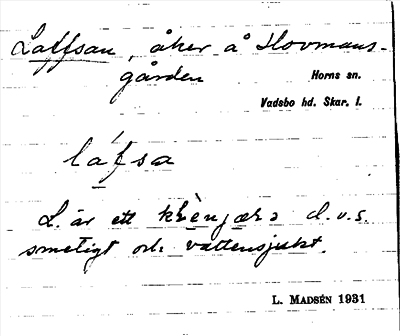 Laffsan, åker å Hovmans-
gården
Horns sn.
Vadsbo hd. Skar. l.
láfsa
L. är ett d.v.s.
smetigt och vattensjukt.
L. MADSÉN 1931